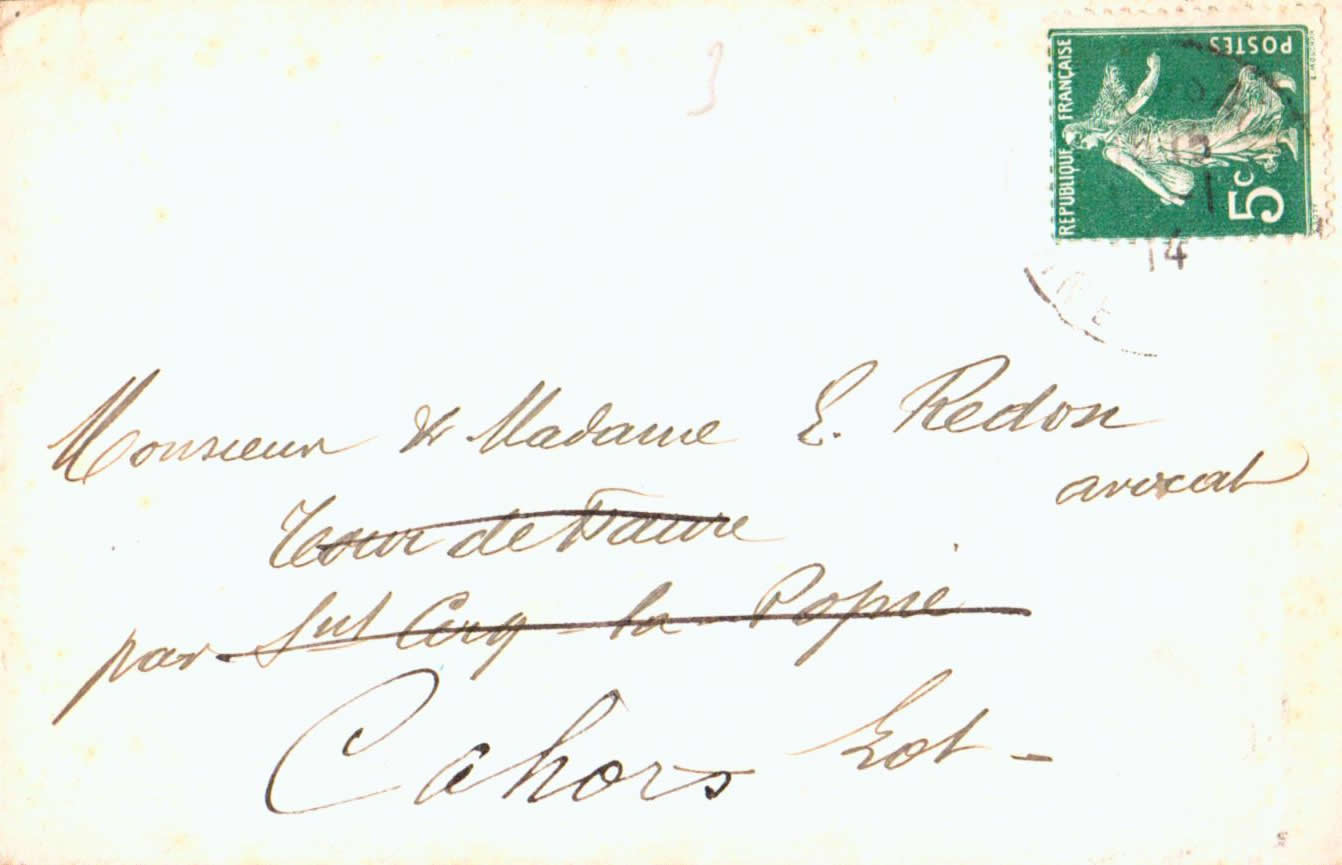 3
RÉPUBLIQUE FRANÇAISE
POSTES
5c
14
Monsieur & Madame E. Redon
avocat
Tour de Faure
par Snt Cirq-la-Popie
Cahors Lot -